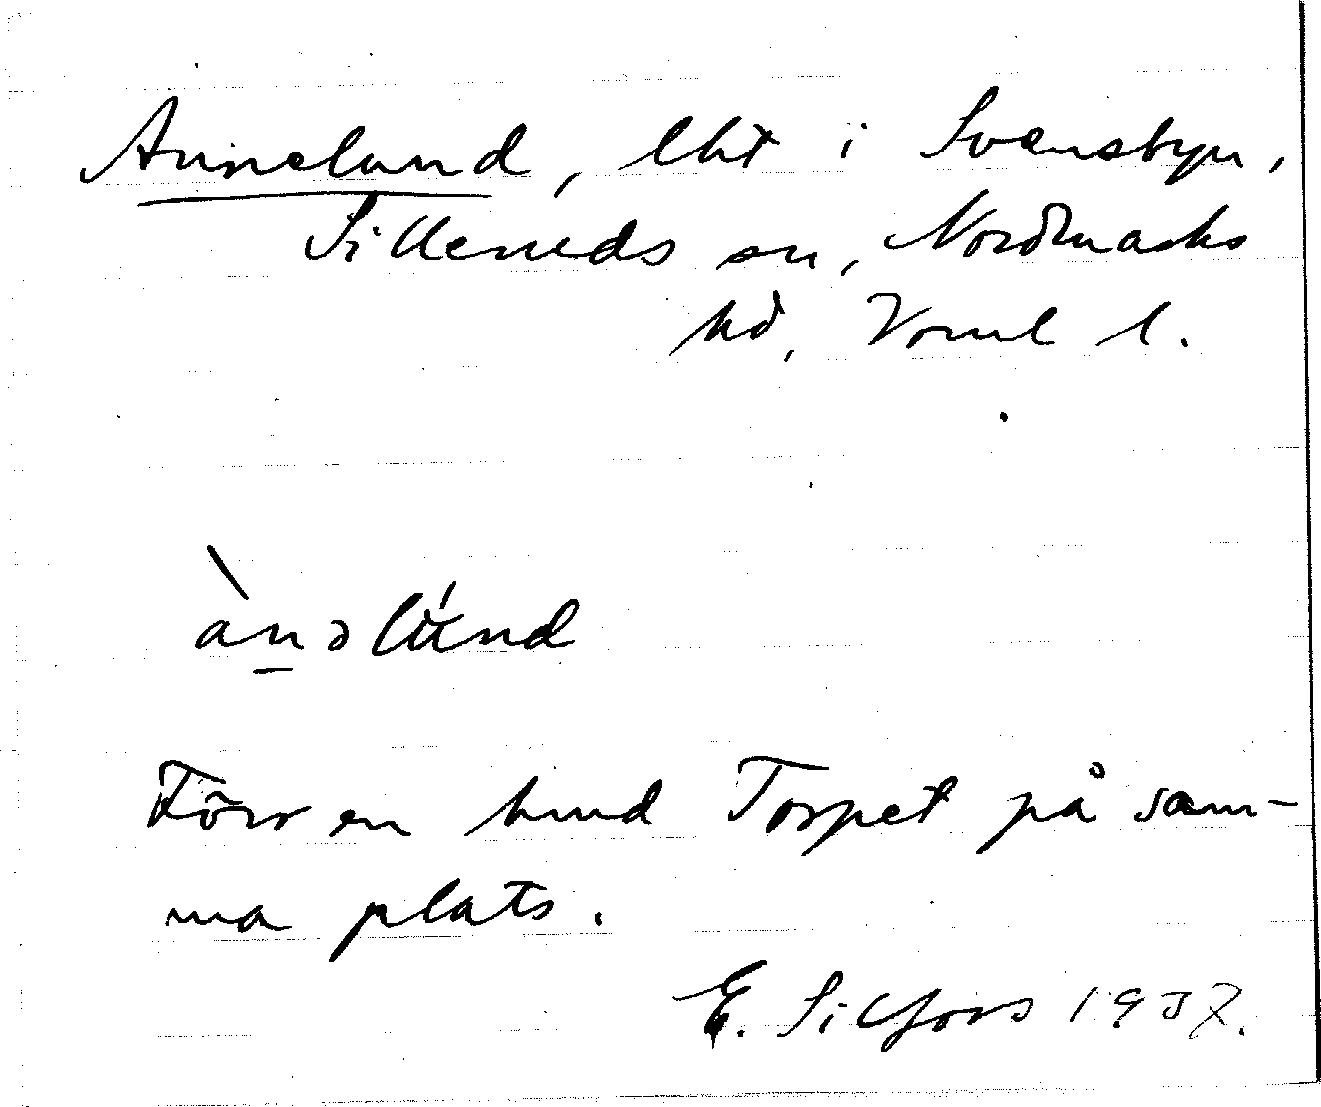 Anneland, lht i Svensbyn,
Silleruds sn, Nordmarks
hd, Vrml l.
àn̲əlúnd
Förr en hund Torpet på sam-
ma plats.
E. Silfors 1937.